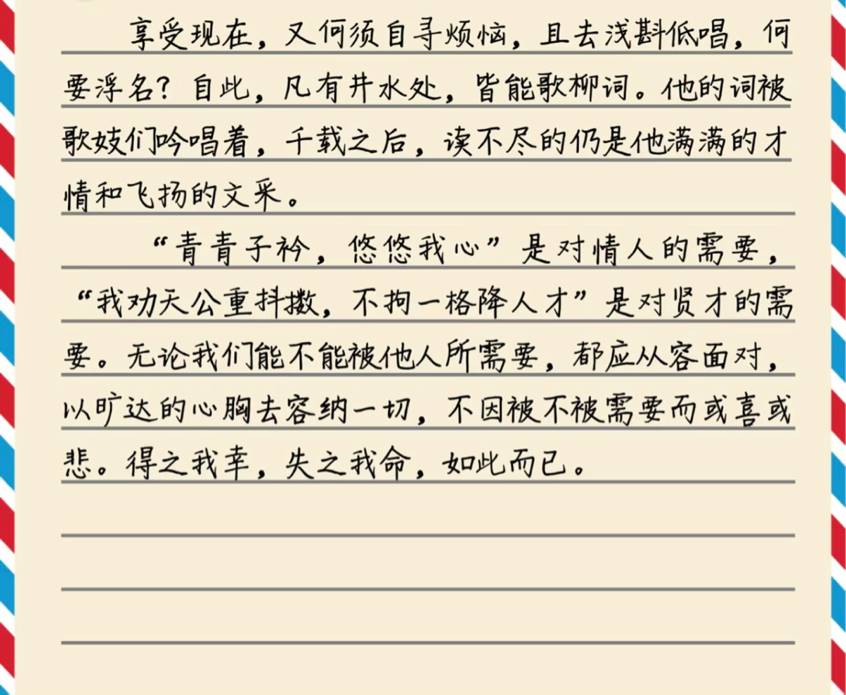 享受现在，又何须自寻烦恼，且去浅斟低唱，何
要浮名？自此，凡有井水处，皆能歌柳词。他的词被
歌妓们吟唱着，千载之后，读不尽的仍是他满满的才
情和飞扬的文采。
“青青子衿，悠悠我心”是对情人的需要，
“我劝天公重抖擞，不拘一格降人才”是对贤才的需
要。无论我们能不能被他人所需要，都应从容面对，
以旷达的心胸去容纳一切，不因被不被需要而或喜或
悲。得之我幸，失之我命，如此而已。